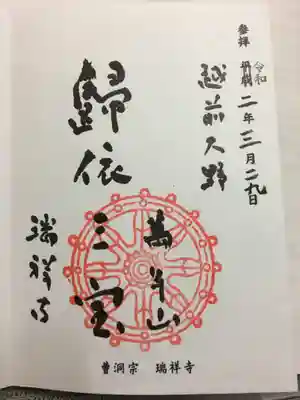 参拝
令和 二年三月二九日
越前大野
歸依三宝
萬年山
瑞祥寺
曹洞宗 瑞祥寺